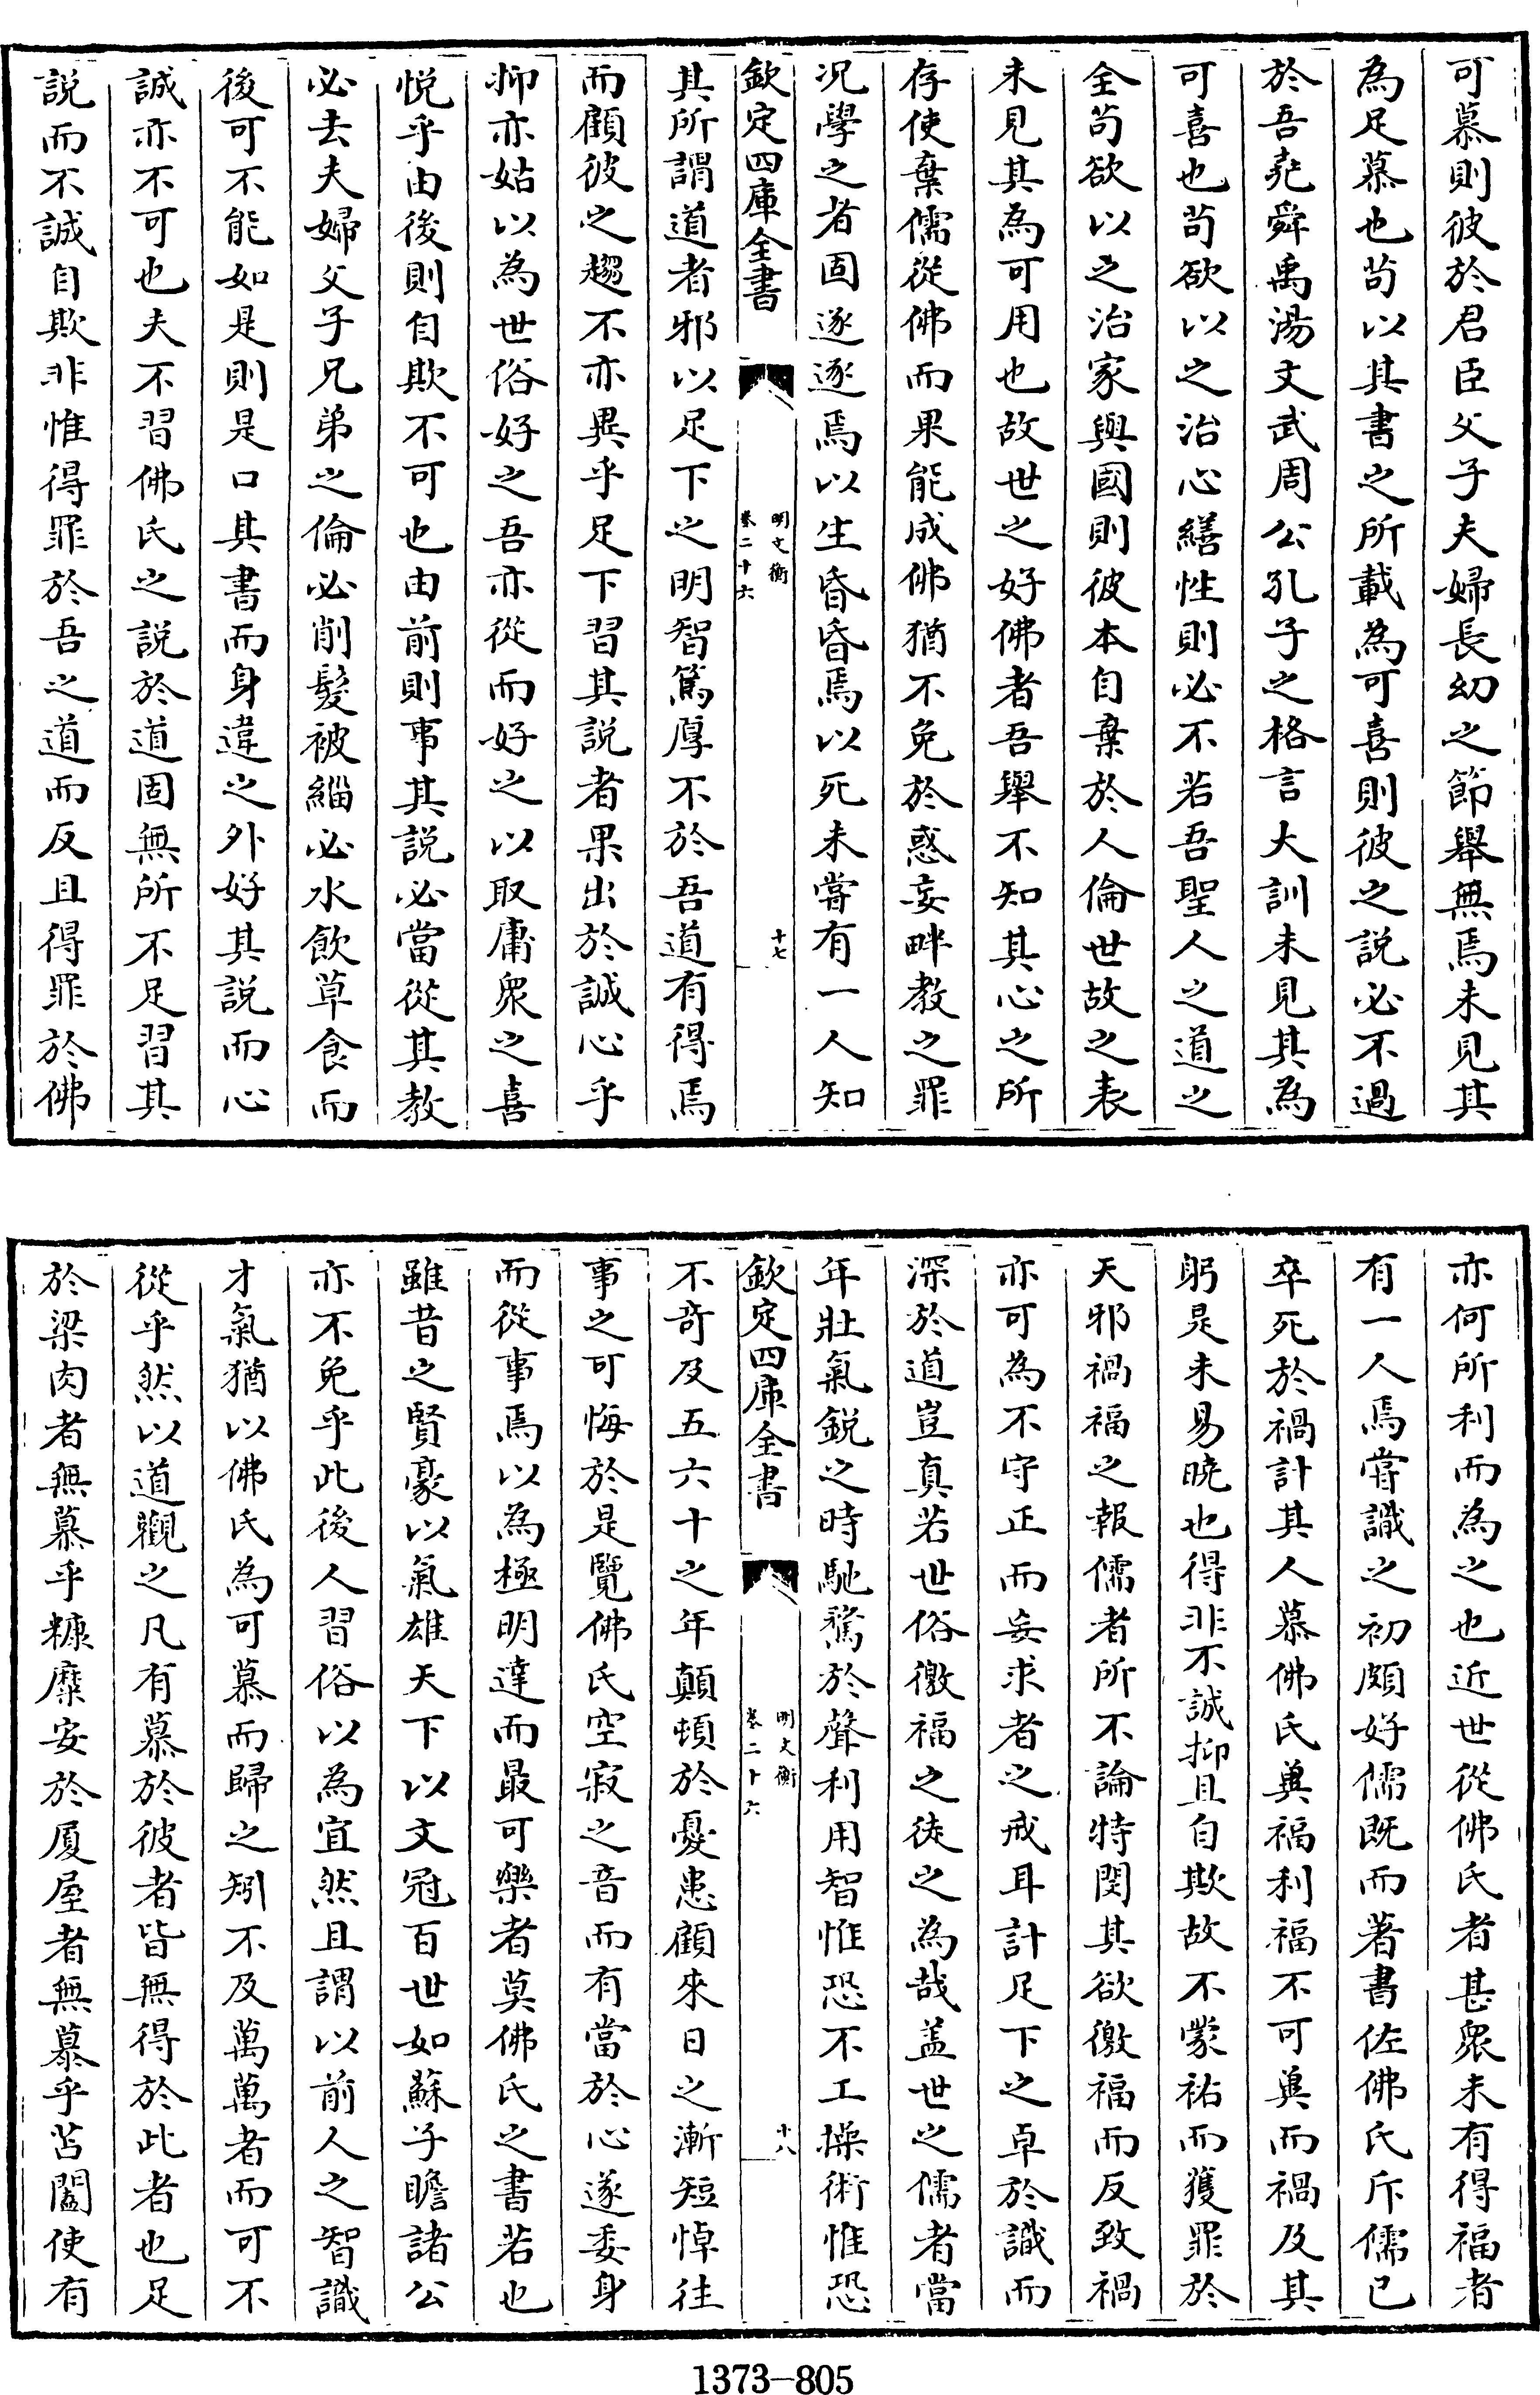 可慕則彼於君臣父子夫婦長幼之節舉無焉未見其
為足慕也茍以其書之所載為可喜則彼之説必不過
於吾堯舜禹湯文武周公孔子之格言大訓未見其為
可喜也茍欲以之治心繕性則必不若吾聖人之道之
全茍欲以之治家與國則彼本自棄於人倫世故之表
未見其為可用也故世之好佛者吾舉不知其心之所
存使棄儒從佛而果能成佛猶不免於惑妄畔教之罪
况學之者固逐逐焉以生昏昏焉以死未嘗有一人知
欽定四庫全書
明文衡
卷二十六
十七
其所謂道者邪以足下之明智篤厚不於吾道有得焉
而顧彼之趨不亦異乎足下習其説者果出於誠心乎
抑亦姑以為世俗好之吾亦從而好之以取庸衆之喜
悦乎由後則自欺不可也由前則事其説必當從其教
必去夫婦父子兄弟之倫必削髮被緇必水飲草食而
後可不能如是則是口其書而身違之外好其説而心
誠亦不可也夫不習佛氏之説於道固無所不足習其
説而不誠自欺非惟得罪於吾之道而反且得罪於佛
亦何所利而為之也近世從佛氏者甚衆未有得福者
有一人焉嘗識之初頗好儒既而著書佐佛氏斥儒已
卒死於禍計其人慕佛氏兾福利福不可兾而禍及其
躬是未易曉也得非不誠抑且自欺故不蒙祐而獲罪於
天邪禍福之報儒者所不論特閔其欲徼福而反致禍
亦可為不守正而妄求者之戒耳計足下之卓於識而
深於道豈真若世俗徼福之徒之為哉盖世之儒者當
年壯氣鋭之時馳騖於聲利用智惟恐不工操術惟恐
欽定四庫全書
明文衡
卷二十六
十八
不竒及五六十之年顛頓於憂患顧來日之漸短悼往
事之可悔於是覽佛氏空寂之音而有當於心遂委身
而從事焉以為極明達而最可樂者莫佛氏之書若也
雖昔之賢豪以氣雄天下以文冠百世如蘇子瞻諸公
亦不免乎此後人習俗以為宜然且謂以前人之智識
才氣猶以佛氏為可慕而歸之矧不及萬萬者而可不
從乎然以道觀之凡有慕於彼者皆無得於此者也足
於粱肉者無慕乎糠糜安於厦屋者無慕乎苫闔使有
1373-805